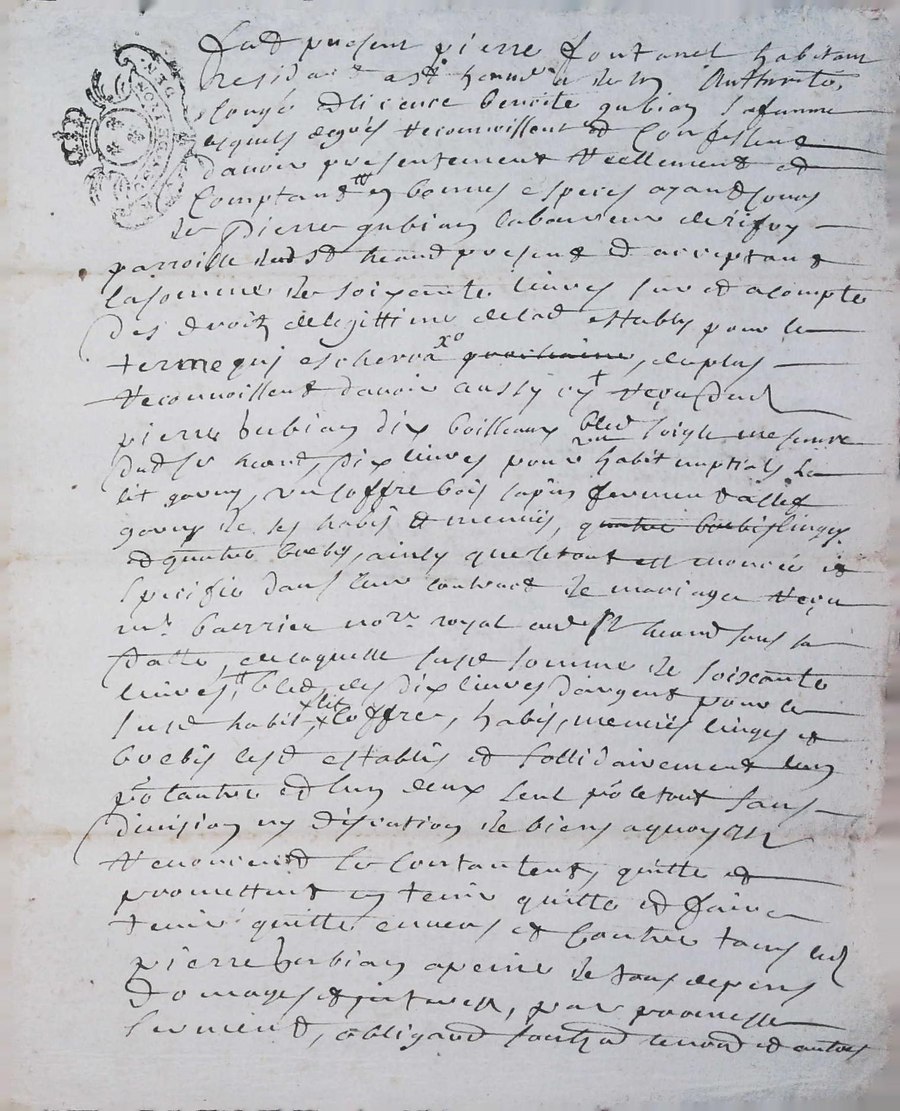 fut present pierre fontanel habitant
residant a St heand et de son Authorité,
conge & licence benoite gubian sa femme
lesquels degrés recounoissent et Confessent
davoir presentement reellement et
Comptant en bonnes espeices ayant cours
de Pierre gubian laboureur de
parroisse dud St heand present et acceptant
la somme de soixante livres sur et acompte
des droitz de legittime de lad establis pour le
terme qui eschera xo prochaine, de plus
recounoissent davoir aussy cy + reçu dud
pierre gubian dix boisseaux bled soigle mesure
dud St heand, dix livres pour habit nuptials un
lit garny, un coffre bois sapin fermant a clef
garny de ses habis & menuis, quatre brebis linges
et quatre brebis, ainsy que le tout est enoncée et
speciffie dans leur contract de mariage reçu
me notre royal aud St heand sous sa
datte, de laquelle susd somme de soixante
livres, bled, des dix livres dargent pour le
susd habit, lit coffre, habis, menuis linges et
brebis lesd establis et sollidairement lun
pr lautre et lun deux seul pr le tout sans
division ny discution de biens a quoy ilz
renoncent se contantent, quitte et
promettent en tenir quitte et faire
tenir quitte envers et contre tous led
pierre gubian a peine de tous depens
domages & interest, par promesse
serment, obligand souzbmd renond et autres